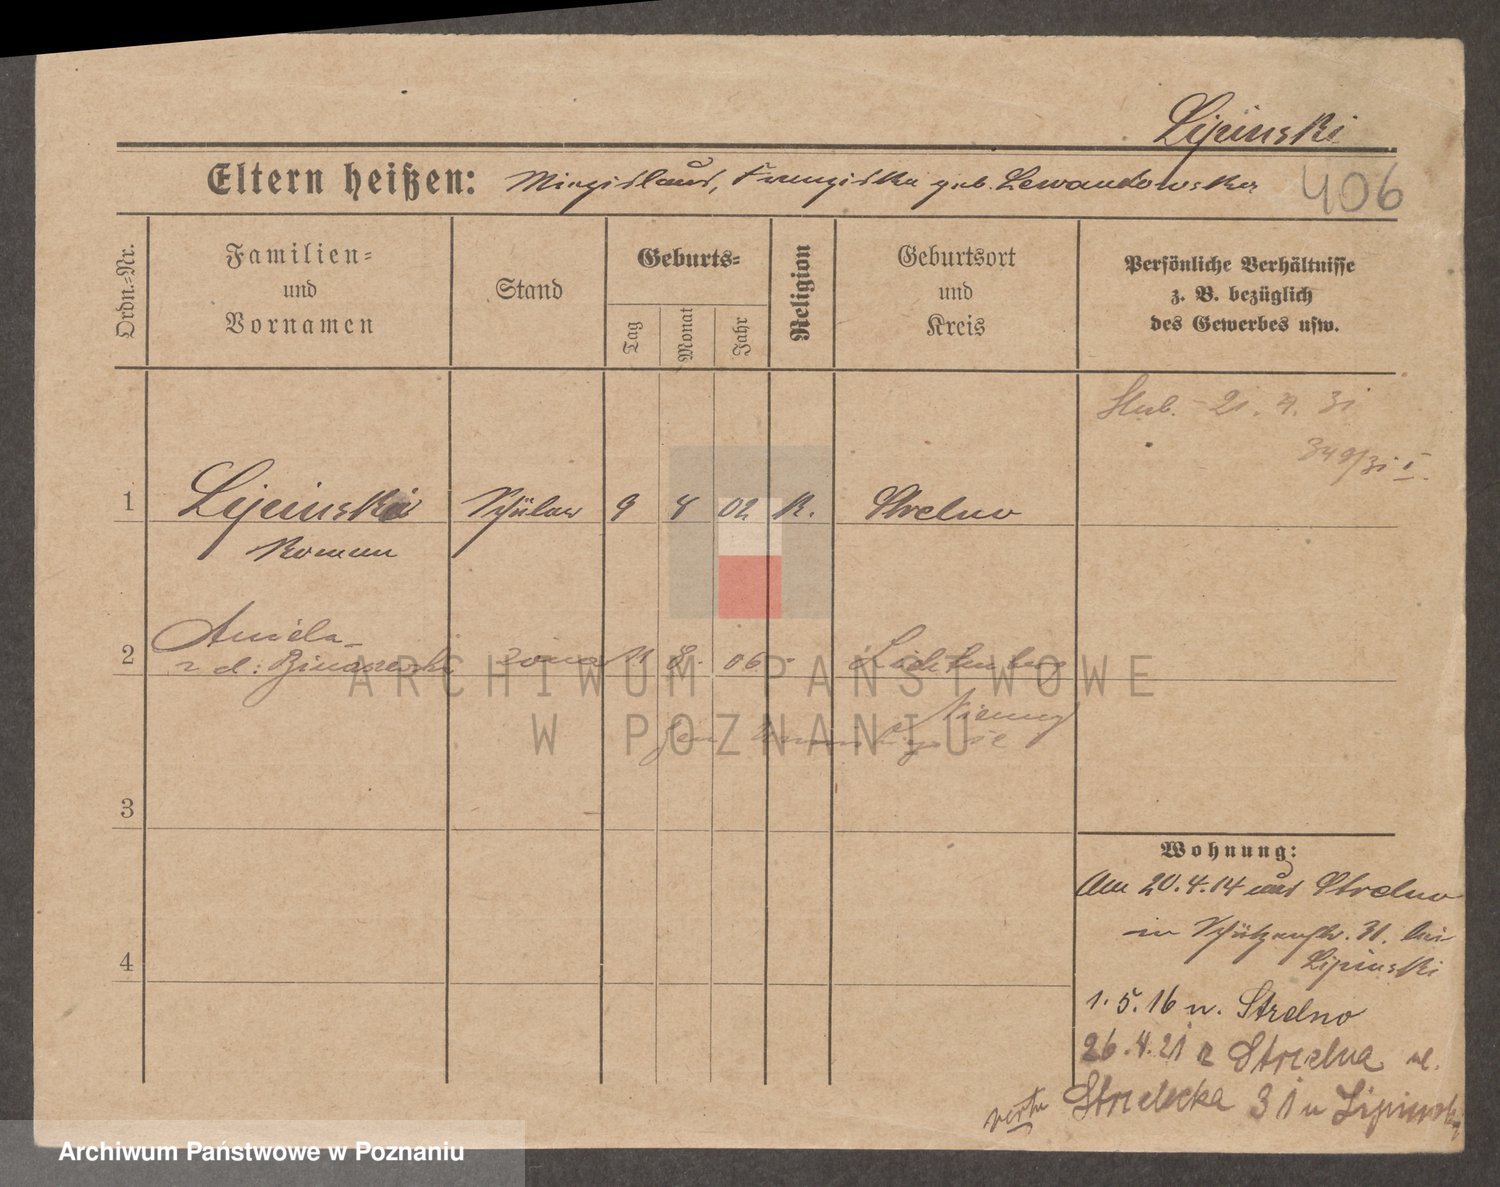 Lipinski
Eltern heißen: Miezislaus, Franziska geb. Lewandowska 406
Ordn.-Nr.
Familien-
und
Vornamen
Stand
Geburts-
Tag
Monat
Jahr
Religion
Geburtsort
und
Kreis
Persönliche Verhältnisse
z. B. bezüglich
des Gewerbes usw.
21. 4. 31
349/31 I.
1 Lipinski Schüler 9 8 02 K. Strelno
Roman
Aniela
2 z d: żona 11 8. 06 Lichtenburg
Niemcy
3
4
Wohnung:
Am 20.4.14 aus Strelno
in Schützenstr. 31. bei
Lipinski
1. 5. 16 n. Strelno
26.4.21 z Strzelna ul.
Strzelecka 31 u Lipinski
verte
ARCHIWUM PAŃSTWOWE
W POZNANIU
Archiwum Państwowe w Poznaniu